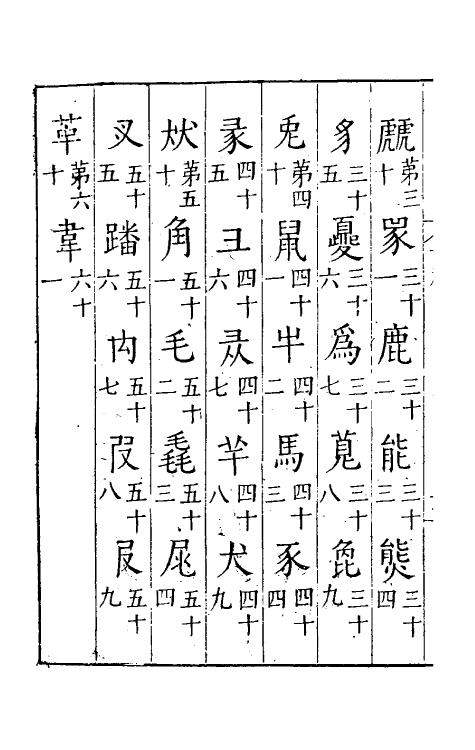 虤第三十　㣇三十一　鹿三十二　能三十三　熊三十四
豸三十五　夔三十六　為三十七　莧三十八　㲋三十九
兔第四十　鼠四十一　牛四十二　馬四十三　豕四十四
彖四十五　彑四十六　犮四十七　羊四十八　犬四十九
㹜第五十　角五十一　毛五十二　毳五十三　尾五十四
叉五十五　蹯五十六　禸五十七　𠬝五十八　𠬝五十九
革第六十　韋六十一